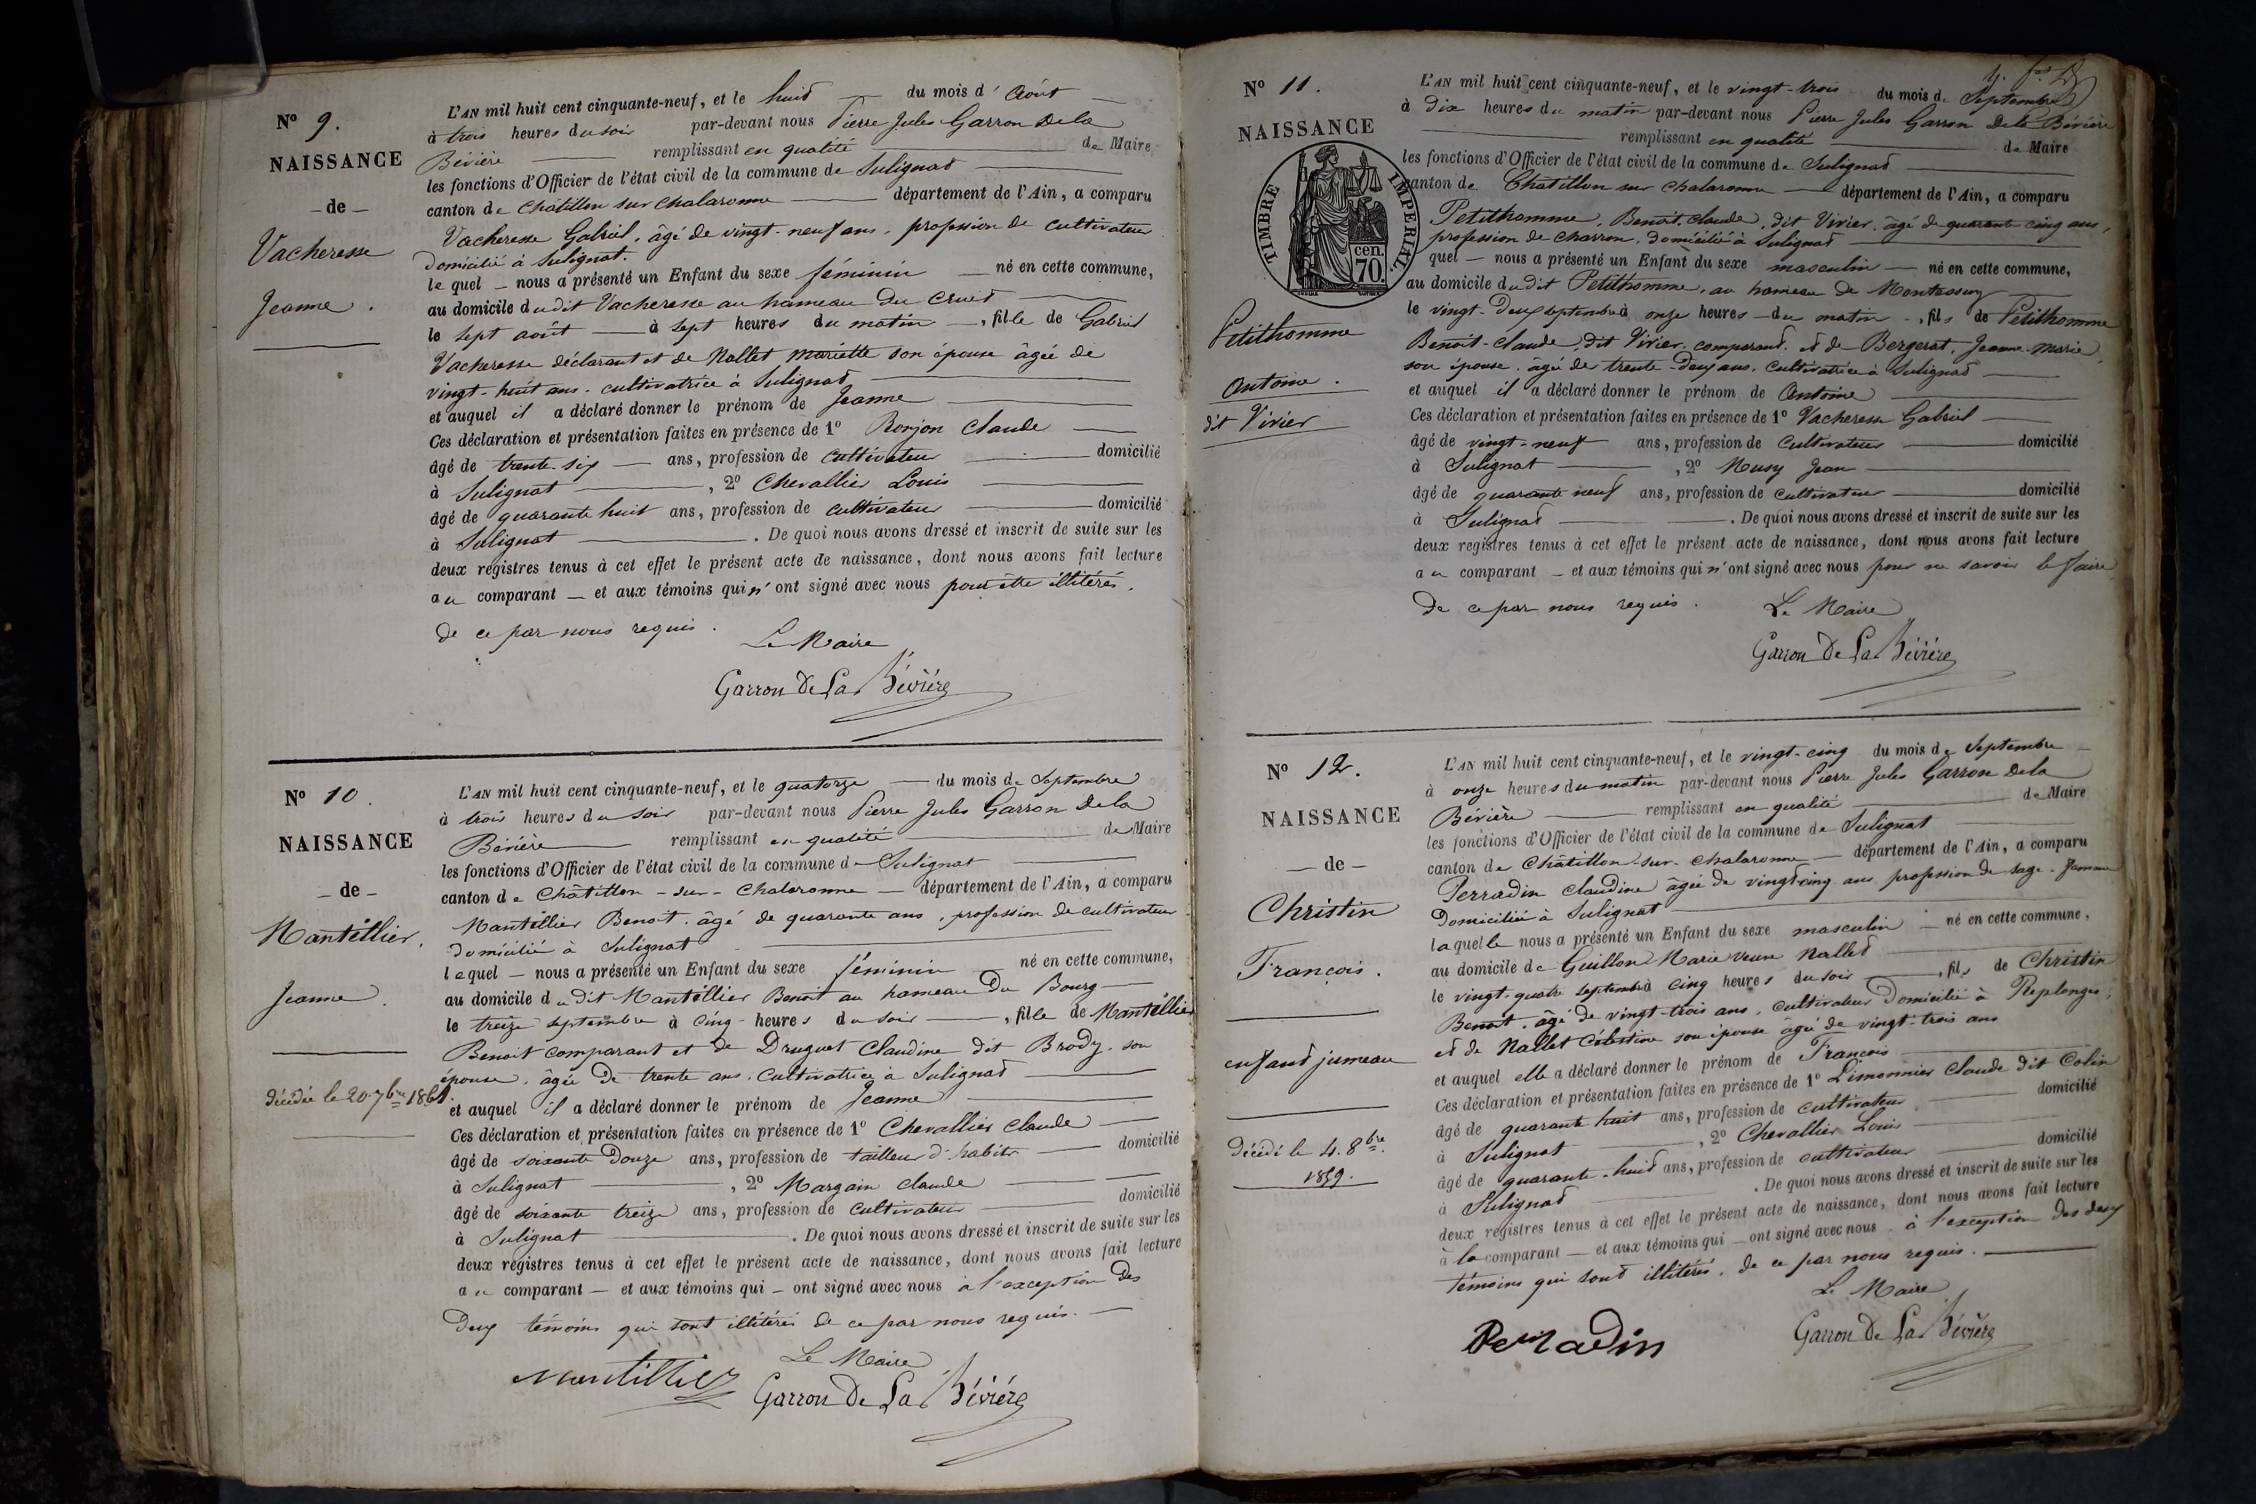 Nº 9.
NAISSANCE
de
Vacheresse
Jeanne.
L'AN mil huit cent cinquante-neuf, et le huit du mois d'Août
à trois heures du soir par-devant nous Pierre Jules Garron De la
Bévière remplissant en qualité de Maire
les fonctions d'Officier de l'état civil de la commune de Sulignat
canton de Châtillon sur Chalaronne département de l'Ain, a comparu
Vacheresse Gabriel, âgé de vingt-neuf ans, profession de cultivateur
domicilié à Sulignat.
lequel nous a présenté un Enfant du sexe féminin né en cette commune,
au domicile dudit Vacheresse au hameau du Cruit
le sept août à sept heures du matin, fille de Gabriel
Vacheresse déclarant et de Nallet Mariette son épouse âgée de
vingt-huit ans. cultivatrice à Sulignat
et auquel il a déclaré donner le prénom de Jeanne
Ces déclaration et présentation faites en présence de 1º Ronjon Claude
âgé de trente-six ans, profession de cultivateur domicilié
à Sulignat, 2º Chevallier Louis
âgé de quarante huit ans, profession de cultivateur domicilié
à Sulignat. De quoi nous avons dressé et inscrit de suite sur les
deux registres tenus à cet effet le présent acte de naissance, dont nous avons fait lecture
au comparant et aux témoins qui n'ont signé avec nous pour être illitérés.
de ce par nous requis.
Le Maire
Garron De La Bévière
Nº 10.
NAISSANCE
de
Mantellier.
Jeanne.
décédée le 20 7bre 1861.
L'AN mil huit cent cinquante-neuf, et le quatorze du mois de Septembre
à trois heures du soir par-devant nous Pierre Jules Garron De la
Bévière remplissant en qualité de Maire
les fonctions d'Officier de l'état civil de la commune de Sulignat
canton de Châtillon-sur-Chalaronne département de l'Ain, a comparu
Mantellier Benoit. âgé de quarante ans, profession de cultivateur
domicilié à Sulignat
lequel nous a présenté un Enfant du sexe féminin né en cette commune,
au domicile dudit Mantellier Benoit au hameau Du Bourg
le treize septembre à cinq heures du soir, fille de Mantellier
Benoit comparant et de Druguet Claudine dit Brody, son
épouse, âgée de trente ans. Cultivatrice à Sulignat
et auquel il a déclaré donner le prénom de Jeanne
Ces déclaration et présentation faites en présence de 1º Chevallier Claude
âgé de soixante Douze ans, profession de tailleur d'habits domicilié
à Sulignat, 2º Margain Claude
âgé de soixante treize ans, profession de cultivateur domicilié
à Sulignat. De quoi nous avons dressé et inscrit de suite sur les
deux registres tenus à cet effet le présent acte de naissance, dont nous avons fait lecture
au comparant et aux témoins qui ont signé avec nous à l'exception Des
Deux témoins qui sont illitérés de ce par nous requis.
Mantillier
Le Maire
Garron De La Bévière
Nº 11.
NAISSANCE
TIMBRE IMPERIAL.
70 cen.
Petithomme
Antoine.
dit Vivier
L'AN mil huit cent cinquante-neuf, et le vingt-trois du mois de Septembre
à dix heures du matin par-devant nous Pierre Jules Garron De la Bévière
remplissant en qualité de Maire
les fonctions d'Officier de l'état civil de la commune de Sulignat
canton de Châtillon sur Chalaronne département de l'Ain, a comparu
Petithomme, Benoit-Claude, dit Vivier, âgé de quarante cinq ans,
profession de charron. domicilié à Sulignat
quel nous a présenté un Enfant du sexe masculin né en cette commune,
au domicile dudit Petithomme, au hameau de Montessuy
le vingt-Deux septembre à onze heures du matin, fils de Petithomme
Benoit-Claude, dit Vivier, comparant. et de Bergerat, Jeanne-Marie,
son épouse. âgée de trente-Deux ans. Cultivatrice à Sulignat
et auquel il a déclaré donner le prénom de Antoine
Ces déclaration et présentation faites en présence de 1º Vacheresse Gabriel
âgé de vingt-neuf ans, profession de Cultivateur domicilié
à Sulignat, 2º Musy Jean
âgé de quarante neuf ans, profession de cultivateur domicilié
à Sulignat. De quoi nous avons dressé et inscrit de suite sur les
deux registres tenus à cet effet le présent acte de naissance, dont nous avons fait lecture
au comparant et aux témoins qui n'ont signé avec nous pour ne savoir le faire
de ce par nous requis.
Le Maire
Garron De La Bévière
Nº 12.
NAISSANCE
de
Christin
François.
enfant jumeau
Décédé le 4. 8bre.
1859.
L'AN mil huit cent cinquante-neuf, et le vingt-cinq du mois de Septembre
à onze heures du matin par-devant nous Pierre Jules Garron De la
Bévière remplissant en qualité de Maire
les fonctions d'Officier de l'état civil de la commune de Sulignat
canton de Châtillon-sur-Chalaronne département de l'Ain, a comparu
Perradin Claudine âgée de vingt cinq ans profession de sage-femme
Domiciliée à Sulignat
laquelle nous a présenté un Enfant du sexe masculin né en cette commune,
au domicile de Guillon Marie veuve Nallet
le vingt-quatre septembre à cinq heures du soir, fils de Christin
Benoit. âgé de vingt-trois ans. cultivateur Domicilié à Replonges,
et de Nallet Célestine son épouse âgée de vingt-trois ans
et auquel elle a déclaré donner le prénom de François
Ces déclaration et présentation faites en présence de 1º Limonnier Claude dit Colin
âgé de quarante huit ans, profession de cultivateur domicilié
à Sulignat, 2º Chevallier Louis
âgé de quarante-huit ans, profession de cultivateur domicilié
à Sulignat. De quoi nous avons dressé et inscrit de suite sur les
deux registres tenus à cet effet le présent acte de naissance, dont nous avons fait lecture
à la comparant et aux témoins qui ont signé avec nous à l'exception des deux
témoins qui sont illitérés, de ce par nous requis.
Le Maire
Perradin
Garron De La Bévière